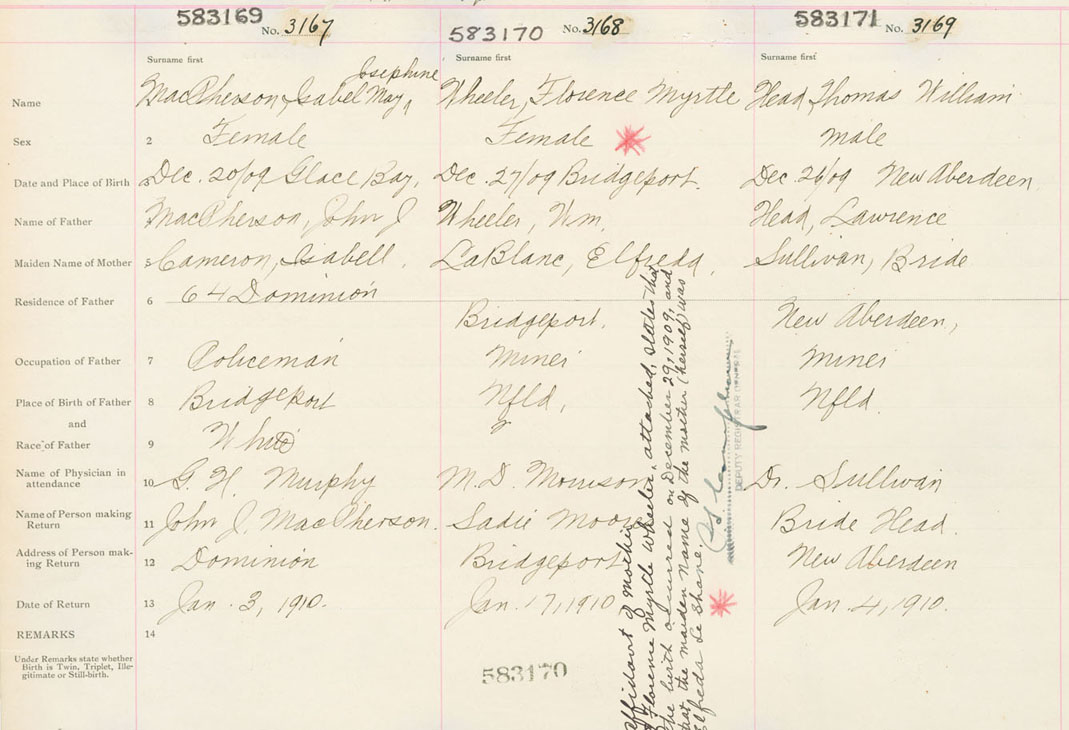 583169 No. 3167
583170 No. 3168
583171 No. 3169
Surname first Surname first Surname first
Josephine
Name MacPherson, Isabel May, Wheeler, Florence Myrtle Head, Thomas William
Sex 2 Female Female male
Date and Place of Birth 3 Dec. 20/09 Glace Bay, Dec. 27/09 Bridgeport. Dec. 26/09 New Aberdeen
Name of Father MacPherson, John J Wheeler, Wm. Head, Lawrence
Maiden Name of Mother 5 Cameron, Isabell. LaBlanc, Elfreda, Sullivan, Bride
Residence of Father 6 64 Dominion
Bridgeport. New Aberdeen,
Occupation of Father 7 Policeman Miner Miner
Place of Birth of Father 8 Bridgeport Nfld, Nfld.
and
Race of Father 9 White
Name of Physician in
attendance 10 G. H. Murphy M. D. Morrison Dr. Sullivan
Name of Person making
Return 11 John J. MacPherson. Sadie Moore Bride Head
Address of Person mak-
ing Return 12 Dominion Bridgeport New Aberdeen
Date of Return 13 Jan. 3, 1910. Jan. 17, 1910 Jan. 4, 1910.
REMARKS 14
Under Remarks state whether
Birth is Twin, Triplet, Ille-
gitimate or Still-birth.
583170
Affidavit of mother
Florence Myrtle Wheeler, attached, states that
the birth occurred on December 29, 1909, and
that the maiden name of the mother (herself) was
Elfreda Le Shane.
DEPUTY REGISTRAR GENERAL